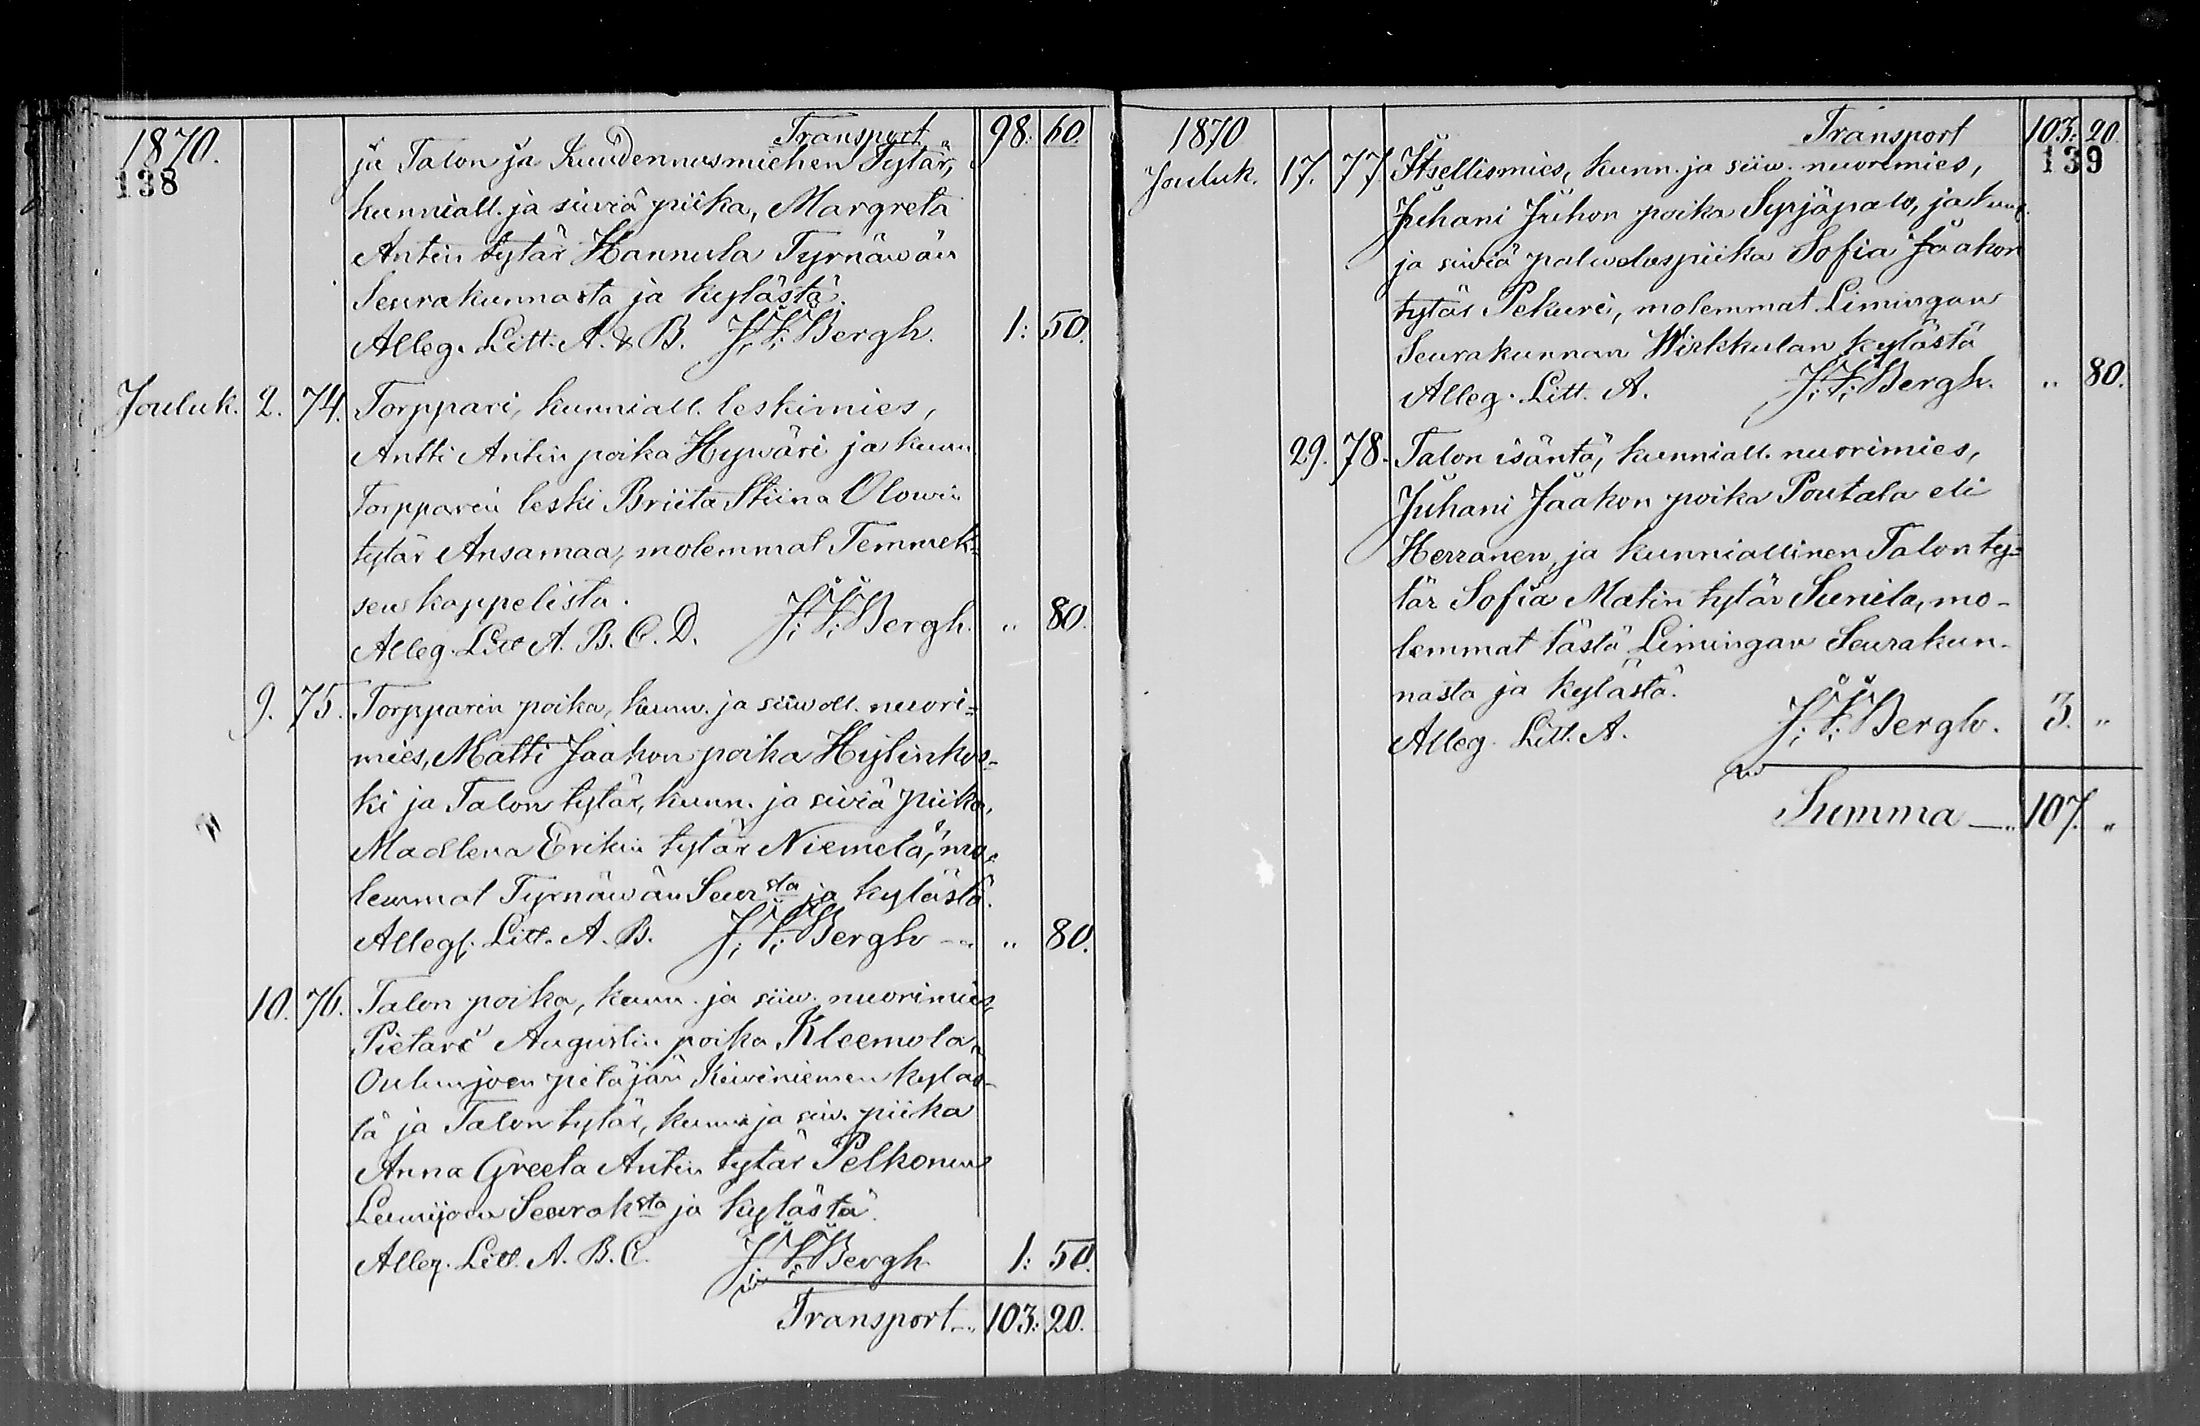 1870.
138
Transport 98: 60.
ja Talon ja Kuudennusmiehen Tytär,
kunniall. ja siiviä piika, Margreta
Antin tytär Hannula Tyrnäwän
Seurakunnasta ja kylästä.
Alleg. Litt. A. & B. J. F. Bergh. 1: 50.
Jouluk. 2. 74. Torppari, kunniall. leskimies,
Antti Antin poika Hywäri ja kunn
Torpparin leski Briita Stiina Olowin
tytär Ansamaa, molemmat Temmek=
sen kappelista.
Alleg. Litt A. B. C. D. J. F. Bergh. " 80.
9. 75. Torpparin poika, kunn. ja siiwoll. nuori=
mies, Matti Jaakon poika Hylinkos-
ki ja Talon tytär, kunn. ja siviä piika,
Madlena Erikin tytär Niemelä, mo=
lemmat Tyrnäwän Seursta ja kylästä.
Alleg. Litt. A. B. J. F. Bergh " 80.
10. 76. Talon poika, kunn. ja siiw. nuorimies,
Pietari Augustin poika Kleemola
Oulunjoen pitäjän Kiwiniemen kyläs-
tä ja Talon tytär, kunn. ja siw. piika
Anna Greeta Antin tytär Pelkonen
Lumijoen Seuraksta ja kylästä.
Alleg. Litt. A. B. C. J. F. Bergh 1: 50.
Transport 103: 20.
1870
Transport 103: 20.
139
Jouluk. 17. 77. Itsellismies, kunn. ja siiw. nuorimies,
Juhani Juhon poika Syrjäpalo, ja kunn.
ja siiviä palweluspiika Sofia Jaakon
tytär Pekuri, molemmat Limingan
Seurakunnan Wirkkulan kylästä
Alleg. Litt. A. J. F. Bergh. " 80.
29. 78. Talon isäntä, kunniall. nuorimies,
Juhani Jaakon poika Poutala eli
Herranen, ja kunniallinen Talon ty=
tär Sofia Matin tytär Sunila, mo-
lemmat tästä Limingan Seurakun-
nasta ja kylästä.
Alleg. Litt. A. J. F. Bergh. 3. "
Summa 107. "